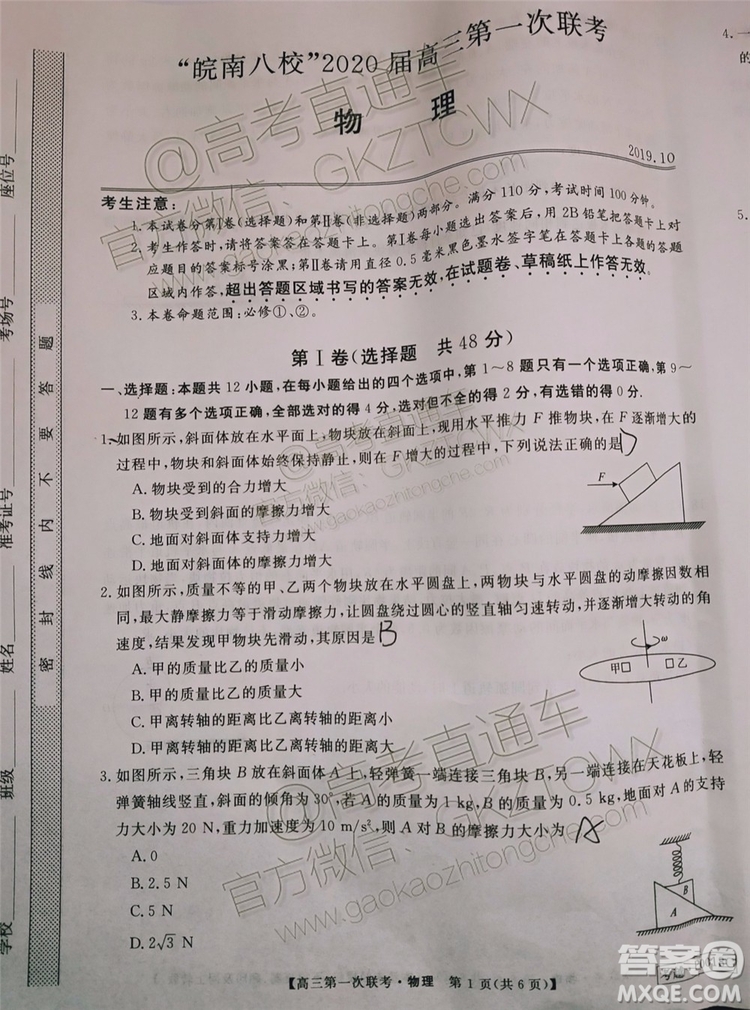 "皖南八校"2020届高三第一次联考
物 理
2019.10
考生注意:
1.本试卷分第Ⅰ卷(选择题)和第Ⅱ卷(非选择题)两部分。满分110分,考试时间100分钟。
2.考生作答时,请将答案答在答题卡上。第Ⅰ卷每小题选出答案后,用2B铅笔把答题卡上对
应题目的答案标号涂黑;第Ⅱ卷请用直径0.5毫米黑色墨水签字笔在答题卡上各题的答题
区域内作答,超出答题区域书写的答案无效,在试题卷、草稿纸上作答无效。
3.本卷命题范围:必修①、②。
第Ⅰ卷(选择题 共48分)
一、选择题:本题共12小题,在每小题给出的四个选项中,第1~8题只有一个选项正确,第9~
12题有多个选项正确,全部选对的得4分,选对但不全的得2分,有选错的得0分.
1.如图所示,斜面体放在水平面上,物块放在斜面上,现用水平推力F推物块,在F逐渐增大的
过程中,物块和斜面体始终保持静止,则在F增大的过程中,下列说法正确的是 D
A.物块受到的合力增大
B.物块受到斜面的摩擦力增大
C.地面对斜面体支持力增大
D.地面对斜面体的摩擦力增大
F
2.如图所示,质量不等的甲、乙两个物块放在水平圆盘上,两物块与水平圆盘的动摩擦因数相
同,最大静摩擦力等于滑动摩擦力,让圆盘绕过圆心的竖直轴匀速转动,并逐渐增大转动的角
速度,结果发现甲物块先滑动,其原因是 B
A.甲的质量比乙的质量小
B.甲的质量比乙的质量大
C.甲离转轴的距离比乙离转轴的距离小
D.甲离转轴的距离比乙离转轴的距离大
ω
甲 乙
3.如图所示,三角块B放在斜面体A上,轻弹簧一端连接三角块B,另一端连接在天花板上,轻
弹簧轴线竖直,斜面的倾角为30°,若A的质量为1 kg,B的质量为0.5 kg,地面对A的支持
力大小为20 N,重力加速度为10 m/s²,则A对B的摩擦力大小为 A
A.0
B.2.5 N
C.5 N
D.2√3 N
B
A
【高三第一次联考·物理 第1页(共6页)】
座位号
考场号
准考证号
姓名
班级
学校
密封线内不要答题
4.一
的
5.
@高考直通车
官方微信:GKZTCWX
www.gaokaozhitongche.com
@高考直通车
官方微信:GKZTCWX
www.gaokaozhitongche.com
@高考直通车
官方微信:GKZTCWX
www.gaokaozhitongche.com
答案圈
MXQE.COM